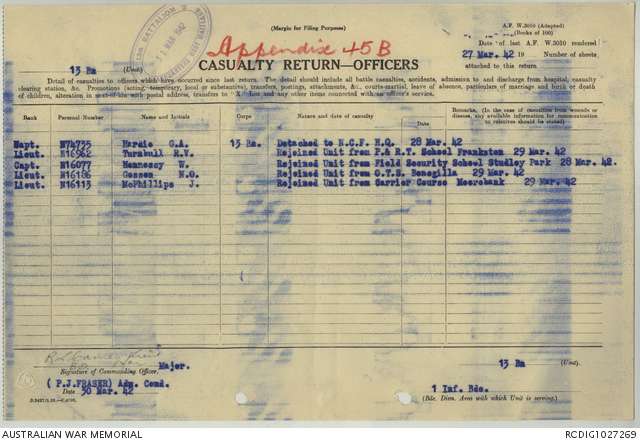 (Margin for Filing Purposes)
A.F. W.3010 (Adapted)
(Books of 100)
13A BATTALION
31 MAR 1942
Appendix 45B
CASUALTY RETURN—OFFICERS
Date of last A.F. W.3010 rendered
27 Mar. 42 19 Number of sheets
attached to this return
13 Bn (Unit)
Detail of casualties to officers which have occurred since last return. The detail should include all battle casualties, accidents, admission to and discharge from hospital, casualty
clearing station, &c. Promotions (acting, temporary, local or substantive), transfers, postings, attachments, &c., courts-martial, leave of absence, particulars of marriage and birth or death
of children, alteration in next-of-kin with postal address, transfers to "X" list and any other items connected with an officer's service.
Rank Personal Number Name and Initials Corps Nature and date of casualty Date Remarks, (In the case of casualties from wounds or disease, any available information for communication to relatives should be stated)
Capt. N74735 Hardie G.A. 13 Bn. Detached to N.C.F. H.Q. 28 Mar. 42
Lieut. N16962 Turnbull R.W. Rejoined Unit from P.& R.T. School Frankston 29 Mar. 42
Capt. N16077 Hennessy W. Rejoined Unit from Field Security School Studley Park 28 Mar. 42
Lieut. N16186 N.G. Rejoined Unit from O.T.S. Bonegilla 29 Mar. 42
Lieut. N16113 McPhillips J. Rejoined Unit from Carrier Course 29 Mar. 42
Major.
Signature of Commanding Officer
(P.J.FRASER) Adm. Comd.
Date 30 Mar. 42
13 Bn (Unit).
1 Inf. Bde.
(Bde. Divn. Area with which Unit is serving.)
AUSTRALIAN WAR MEMORIAL
RCDIG1027269